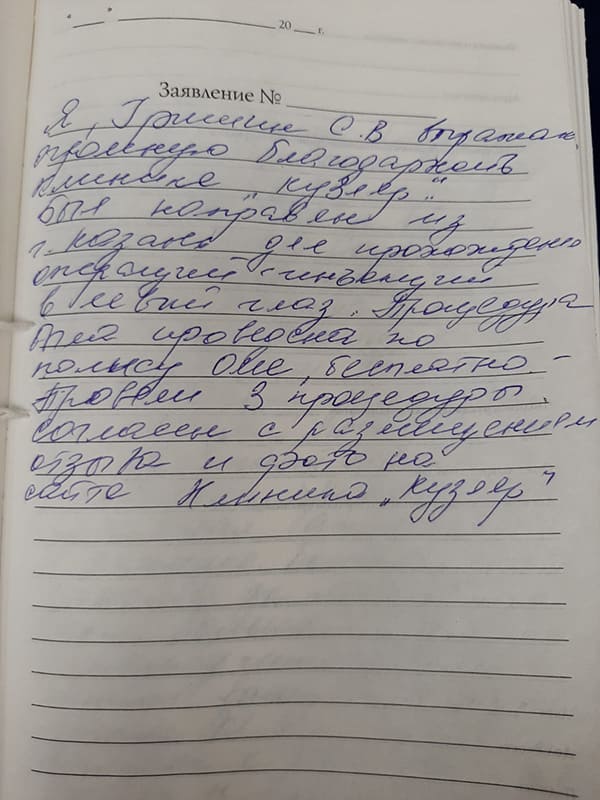 " " 20 г.
Заявление №
Я, Гришин С.В выражаю
огромную благодарность
клинике „Кузляр"
Был направлен из
г. Казань для прохождения
операций - инъекций
в левый глаз. Процедура
была проведена по
полису ОМС, бесплатно. -
Провели 3 процедуры.
согласен с размещением
отзыва и фото на
сайте Клиника „Кузляр"